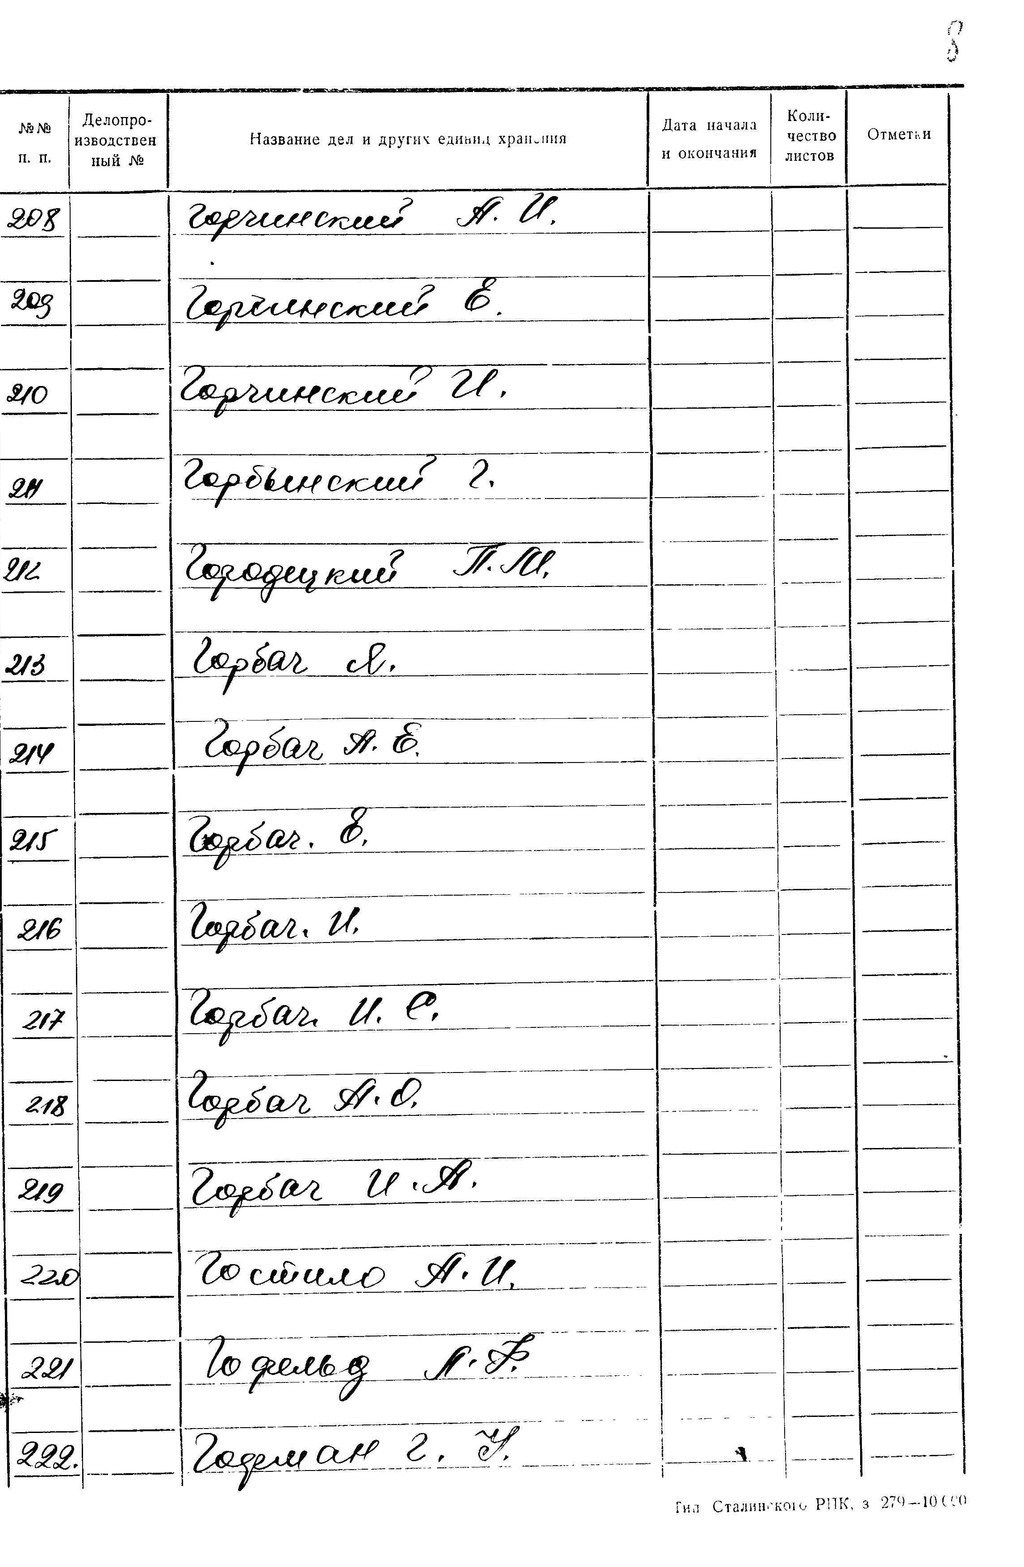 8
№№ п. п.
Делопро-
изводствен
ный №
Название дел и других единиц хранения
Дата начала
и окончания
Коли-
чество
листов
Отметки
208 Горчинский А. И.
209 Горчинский Е.
210 Горчинский И.
211 Горбынский Г.
212 Городецкий П. М.
213 Горбач Я.
214 Горбач А. Е.
215 Горбач. Е.
216 Горбач. И.
217 Горбач. И. С.
218 Горбач А. О.
219 Горбач И. А.
220 Гостило А. И.
221 Гофельд А. Ф.
222. Гофман Г. У.
Тип Сталинского РПК, з 279—10000